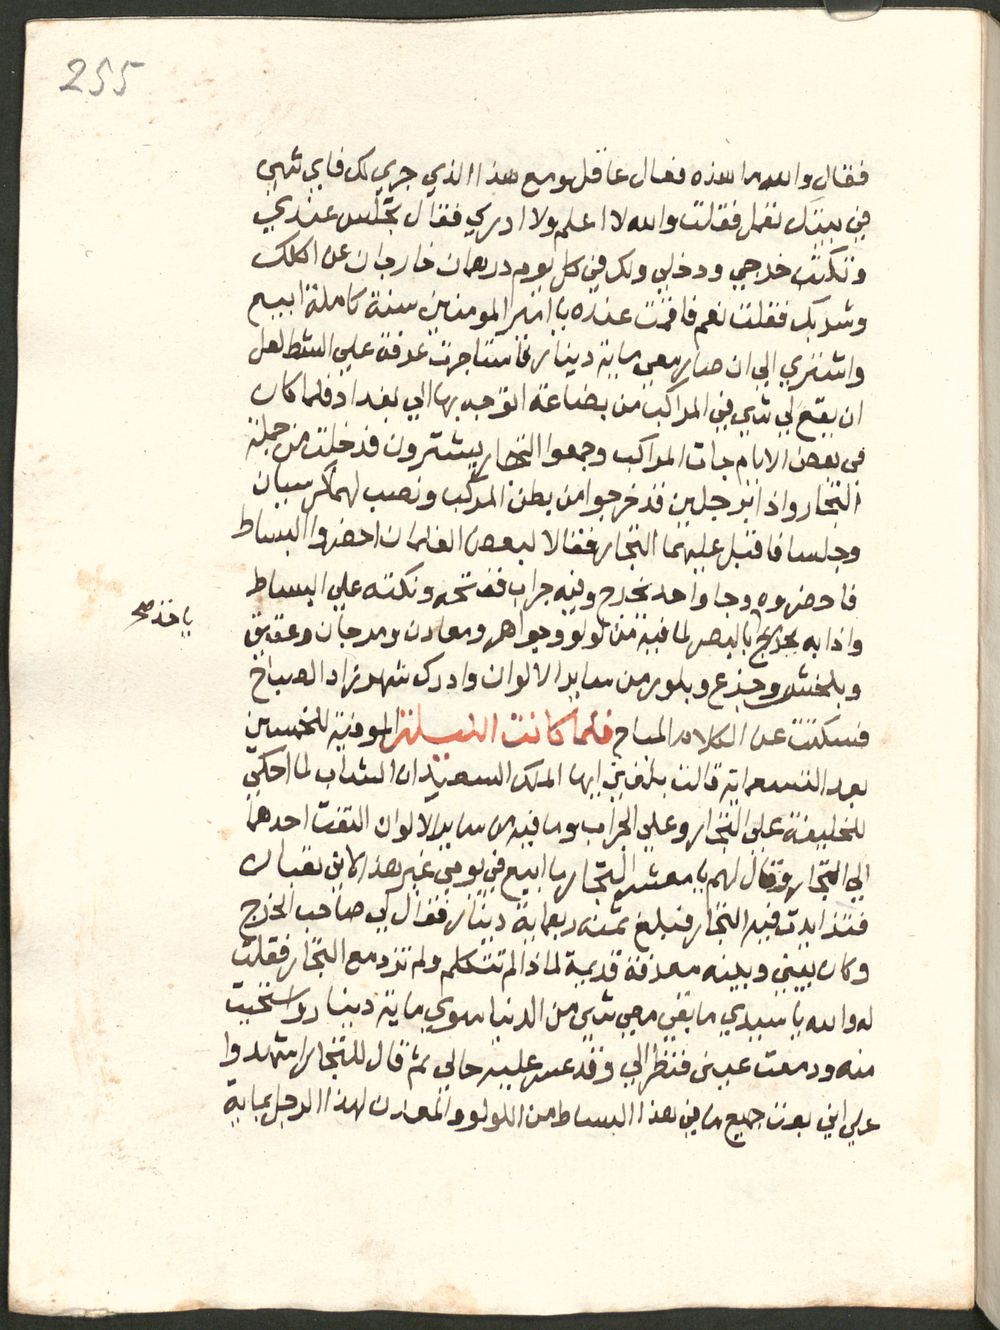 255
فقال والله ما هذه فعال عاقل ومع هذا الذي جري لك فاي شي
في بيتك تفعل فقلت والله لا اعلم ولا ادري فقال تجلس عندي
وتكتب خرجي ودخلي ولك في كل يوم درهمان خارجان عن اكلك
وشربك فقلت نعم فاقمت عنده يا امير المومنين سنة كاملة ابيع
واشتري الي ان صار معي ماية دينار فاستاجرت غرفة علي الشط لعل
ان يقع لي شي في المراكب من بضاعة اتوجه بها الي بغداد فلما كان
في بعض الايام جات المراكب وجمعوا التجار يشترون فدخلت من جملة
التجار واذا برجلين قد خرجوا من بطن المركب ونصب لهما كرسيان
وجلسا فاقبل عليهما التجار فقالا لبعض الغلمان احضروا البساط
فاحضروه وجا واحد بخرج وفيه جراب ففتحه ونكته علي البساط
واذا به بالبصر لما فيه من لولو وجواهر ومعادن ومرجان وعقيق
ياخذ صح
وبلخش وجزع وبلور من ساير الالوان وادرك شهرزاد الصباح
فسكتت عن الكلام المباح فلما كانت الليلة الموفية للخمسين
بعد التسعماية قالت بلغني ايها الملك السعيد ان الشاب لما احكي
للخليفة علي التجار وعلي الجراب وما فيه من ساير الالوان التفت احدهما
الي التجار وقال لهم يا معشر التجار ما ابيع في يومي غير هذا لاني تعبان
فتزايدت فيه التجار فبلغ ثمنه ربعماية دينار فقال لي صاحب الخرج
وكان بيني وبينه معرفة قديمة لماذا لم تتكلم ولم تزد مع التجار فقلت
له والله يا سيدي ما بقي معي شي من الدنيا سوي ماية دينار واستحيت
منه ودمعت عيني فنظر الي وقد عسر عليه حالي ثم قال للتجار اشهدوا
علي اني بعت جميع ما في هذا البساط من اللولو والمعادن لهذا الرجل بماية